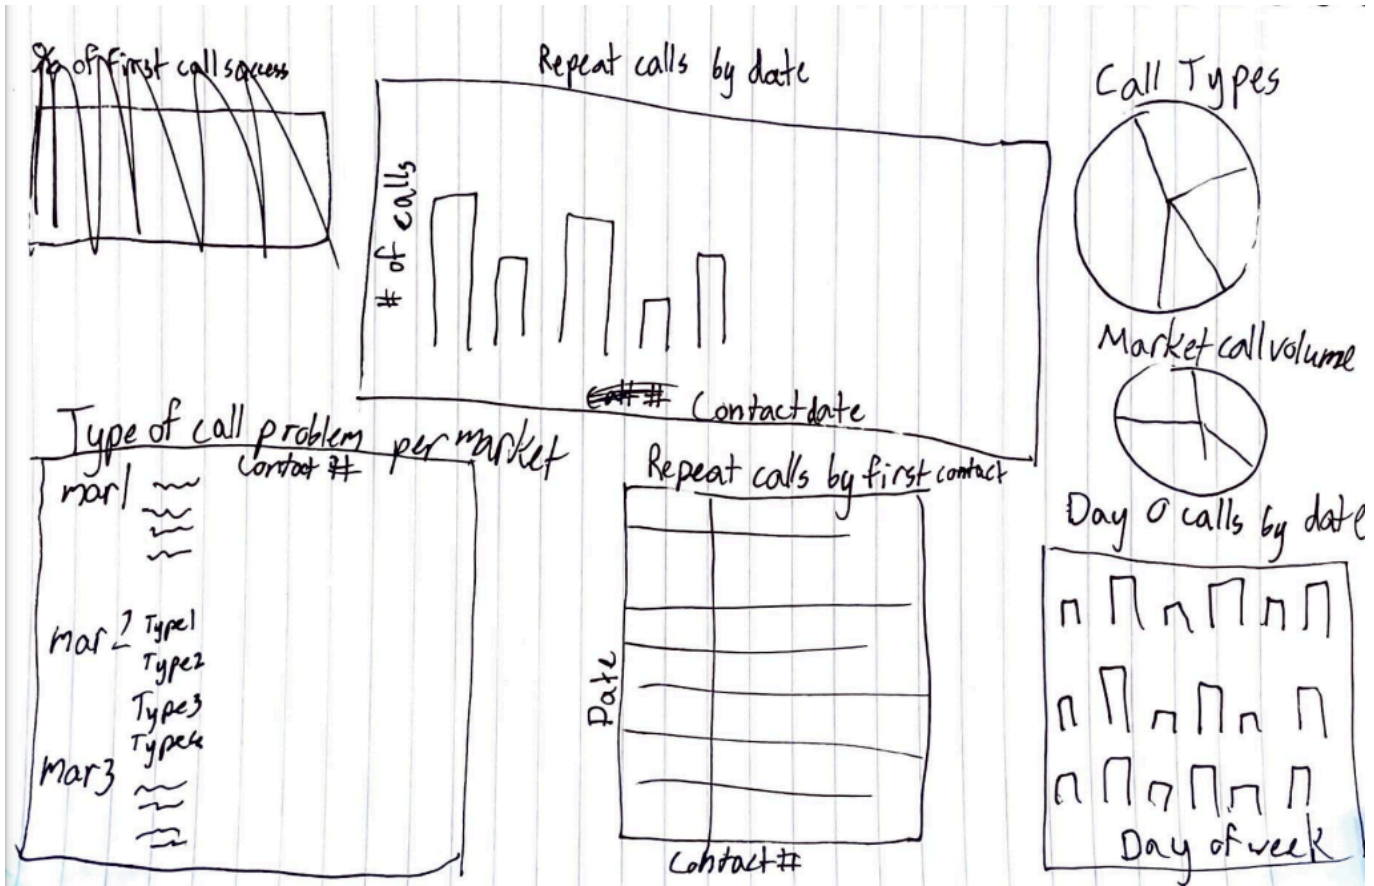 % of first call success
Repeat calls by date
# of calls
Contact date
Call Types
Market call volume
Type of call problem per market
Contact #
mar1
mar2 Type1
Type2
Type3
Type4
Mar3
Repeat calls by first contact
Date
Contact #
Day 0 calls by date
Day of week